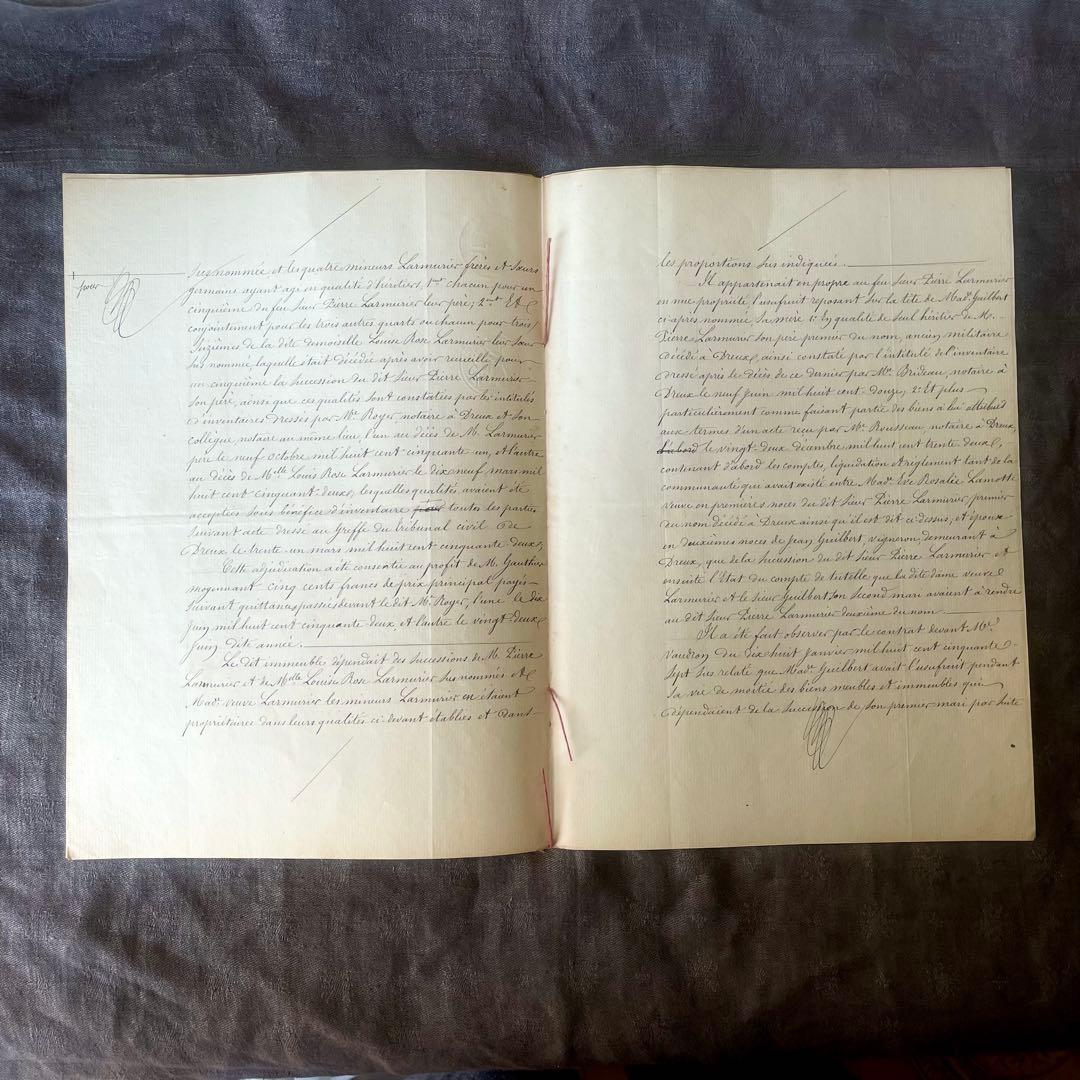 pour
sus nommée et les quatre mineurs Larmurier frères et sœurs
germains ayant agi en qualité d'héritiers, 1ent chacun pour un
cinquième du feu Sieur Pierre Larmurier leur père; 2ent Et
conjointement pour les trois autres quarts ou chacun pour trois
Sizièmes de la dite demoiselle Louise Rose Larmurier leur Sœur
sus nommée, laquelle était décédée après avoir recueilli pour
un cinquième la succession du dit Sieur Pierre Larmurier
son père, ainsi que ces qualités sont constatées par les intitulés
d'inventaires dressés par Me Royer, notaire à Dreux et son
collègue, notaire au même lieu, l'un au décès de M. Larmurier
père le neuf octobre mil huit cent cinquante un, et l'autre
au décès de Melle Louis Rose Larmurier le dix neuf mars mil
huit cent cinquant deux, lesquelles qualités avaient été
acceptées sous bénéfice d'inventaire toutes les parties
suivant acte dressé au Greffe du tribunal civil de
Dreux le trente un mars mil huit cent cinquante deux,
Cette adjudication a été consentie au profit de M. Gauthier
moyennant cinq cents francs de prix principal payés
suivant quittances passées devant le dit Me Royer, l'une le dix
Juin mil huit cent cinquante deux, et l'autre le vingt deux
Juin dite année.
Le dit immeuble dépendait des successions de M. Pierre
Larmurier et de Melle Louise Rose Larmurier sus nommés et
Made veuve Larmurier les mineurs Larmurier en étaient
propriétaires dans leurs qualités ci-devant établies et dans
les proportions sus indiquées.
Il appartenait en propre au feu Sieur Pierre Larmurier
en nue propriété l'usufruit reposant sur la tête de Made Guilbert
ci-après nommée, sa mère 1: En qualité de seul héritier de M.
Pierre Larmurier son père premier du nom, ancien militaire
décédé à Dreux, ainsi constaté par l'intitulé de l'inventaire
dressé après le décès de ce dernier par Me Brideau, notaire à
Dreux le neuf Juin mil huit cent douze, 2: Et plus
particulièrement comme faisant partie des biens à lui attribués
aux termes d'un acte reçu par Me Rousseau, notaire à Dreux,
d'abord le vingt deux décembre mil huit cent trente deux,
contenant d'abord les comptes, liquidation et règlement tant de la
communauté qui avait existé entre Made Eve Rosalie Lamotte
veuve en premières noces du dit Sieur Pierre Larmurier premier
du nom décédé à Dreux ainsi qu'il est dit ci-dessus, et épouse
en deuxièmes noces de Jean Guilbert, vigneron, demeurant à
Dreux, que de la succession du dit Sieur Pierre Larmurier et
ensuite l'Etat du compte de tutelle que la dite dame veuve
Larmurier et le Sieur Guilbert son second mari avaient à rendre
au dit Sieur Pierre Larmurier deuxième du nom.
Il a été fait observer par le contrat devant Me
Vaudron du dix huit Janvier mil huit cent cinquante
sept sus relaté que Made Guilbert avait l'usufruit pendant
sa vie de moitié des biens meubles et immeubles qui
dépendaient de la succession de son premier mari par suite